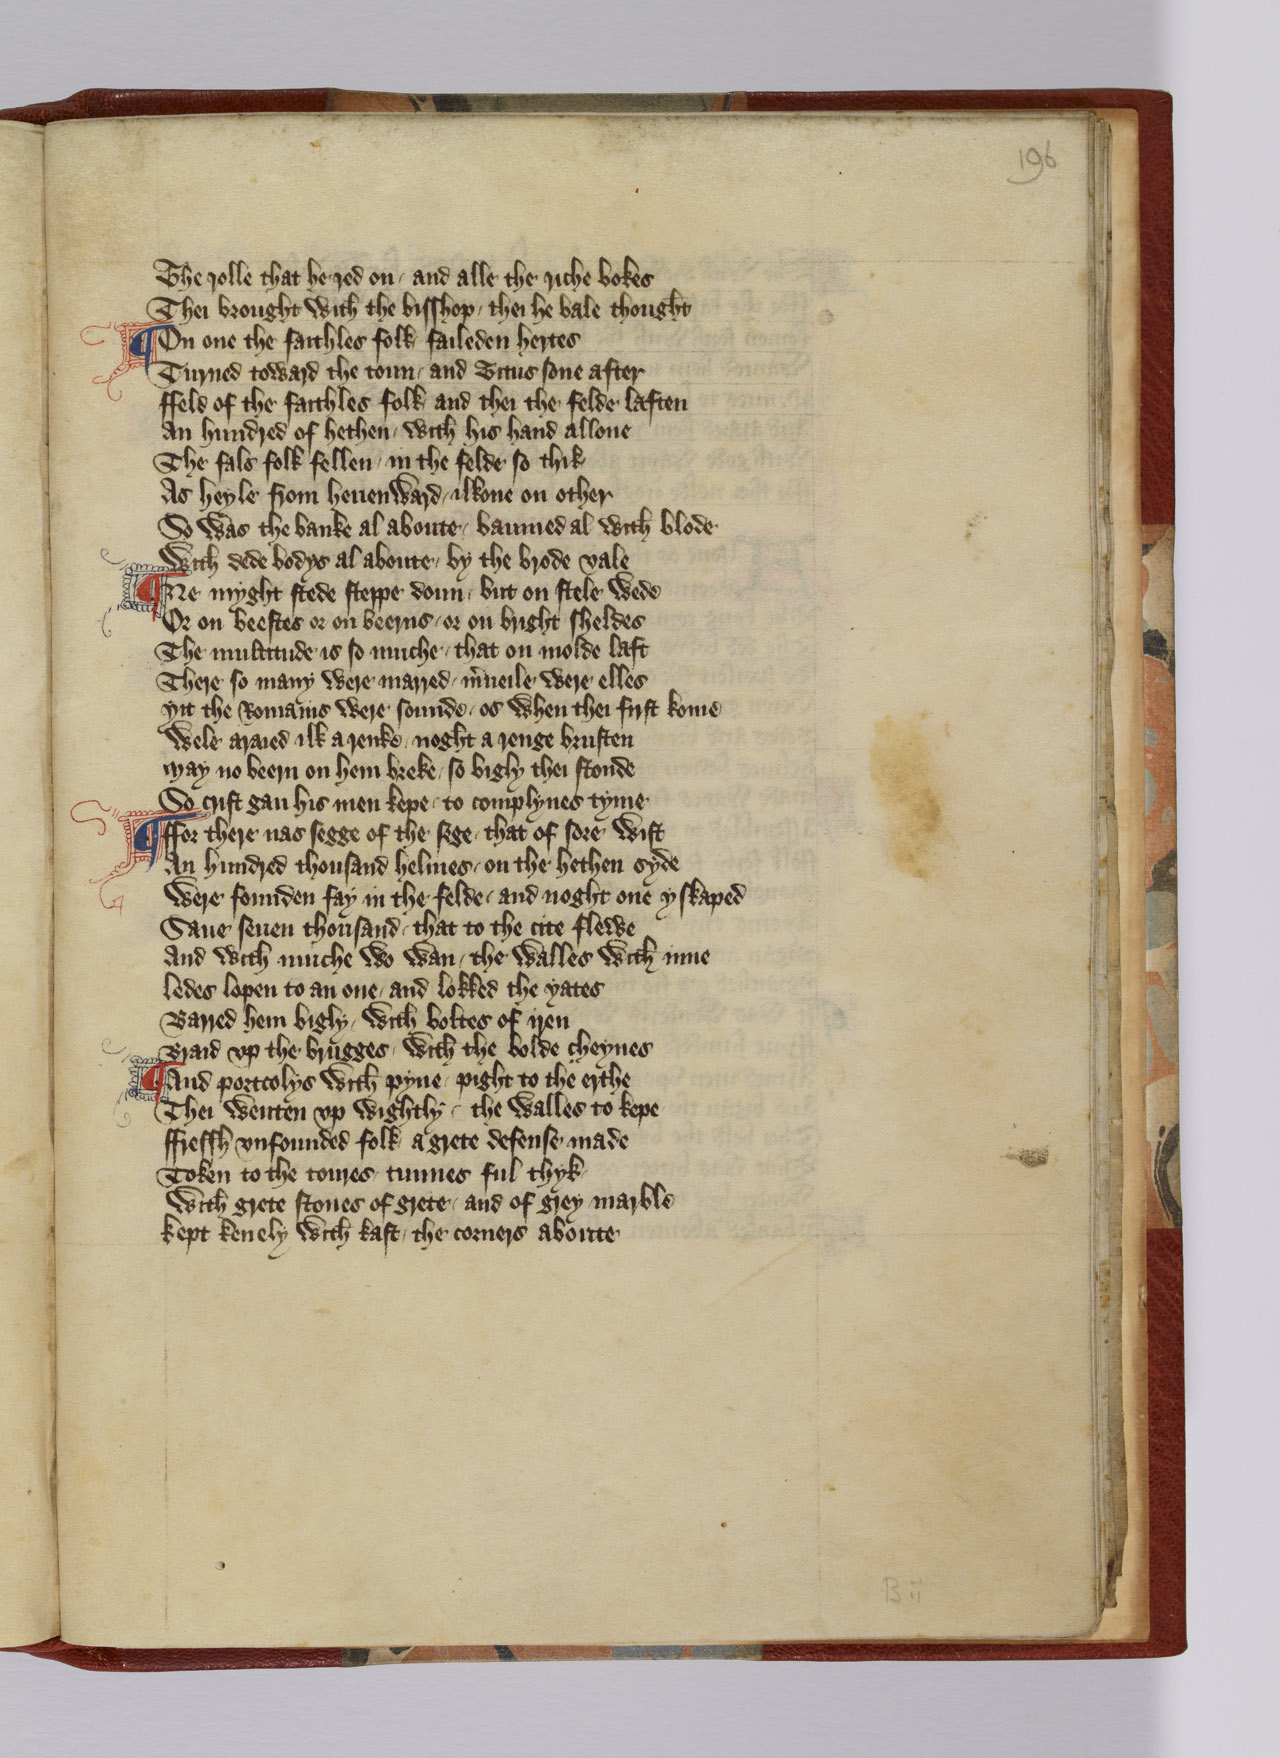 196
The rolle that he red on / and alle the riche bokes
Thei brought with the bisshop / thei he bale thought
¶ On one the faithles folk / faileden hertes
Turned toward the toun / and Titus sone after
ffeld of the faithles folk / and thei the felde lasten
An hundred of hethen / with his hand allone
The fals folk fellen / in the felde so thik
As heyle from heuenward / ilkone on other
So was the banke al aboute / baumed al with blode
With dede bodys al aboute / by the brode vale
¶ Ne myght stede steppe doun / but on stele wede
Or on beestes or on beerns / or on bright sheldes
The multitude is so muche / that on molde last
There so many were marred / m̃ueile were elles
yit the Romains were sounde / os when thei first kome
Wele araied ilk a renke / noght a renge brusten
May no beern on hem breke / so bigly thei stonde
So crist gan his men kepe / to complynes tyme
¶ ffor there nas segge of the sege / that of sore wist
An hundred thousand helmes / on the hethen syde
Were founden fay in the felde / and noght one yskaped
Saue seuen thousand / that to the cite flewe
And with muche wo wan / the walles with inne
ledes lopen to an one / and lokked the yates
Barred hem bigly / with boltes of iren
Braid vp the brugges / with the bolde cheynes
¶ And portcolys with pyne / pight to the erthe
Thei wenten vp wightly / the walles to kepe
ffressh vnfounded folk / a grete defense made
Token to the toures / tunnes ful thyk
With grete stones of grete / and of grey marble
kept kenely with kast / the corners aboute
B ii